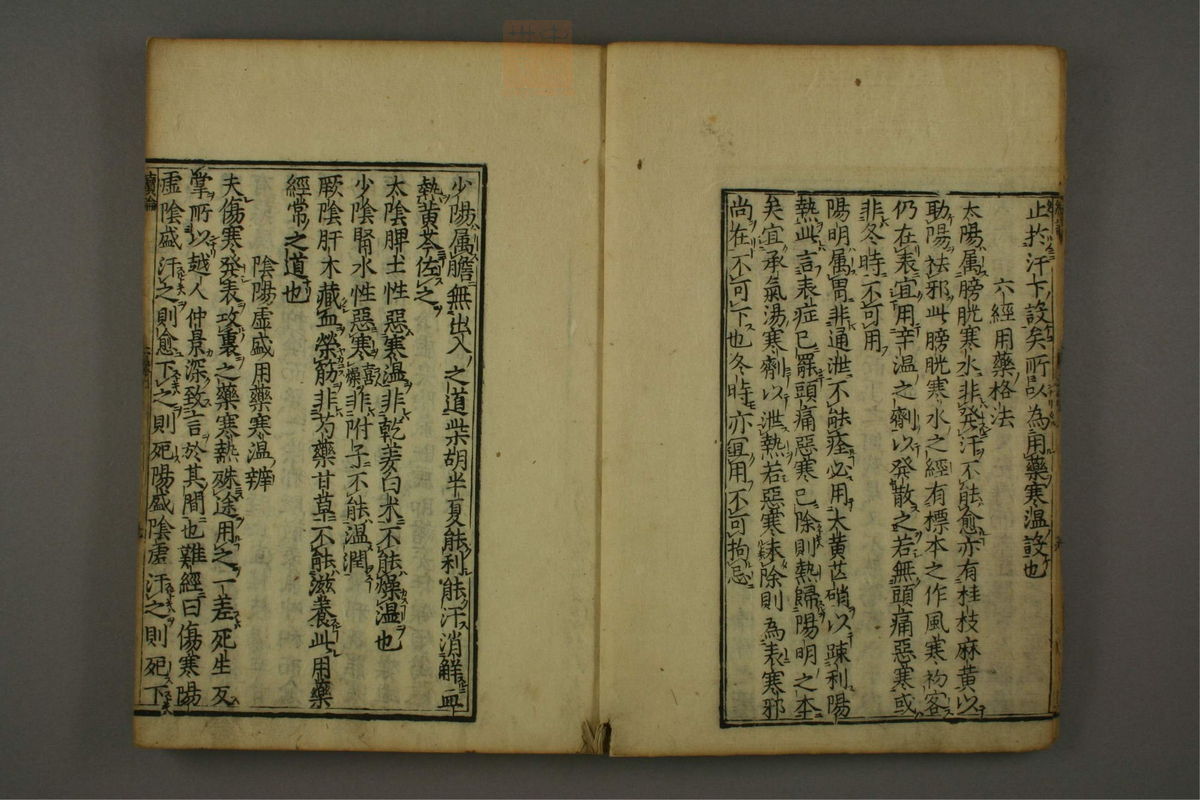 止於汗下設矣所以為用藥寒溫設也
六經用藥格法
太陽属膀胱寒水非發汗不能愈亦有桂枝麻黄以
助陽袪邪此膀胱寒水之經有標本之作風寒初客
仍在表宜用辛温之劑以発散之若無頭痛惡寒或
非冬時不可用
陽明属胃非通泄不能痊必用大黄芒硝以踈利陽
熱此言表症已罷頭痛惡寒已除則熱歸陽明之本
矣宜承氣湯寒劑以泄熱若惡寒未除則為表寒邪
尚在不可下也冬時亦宜用不可拘忌
少陽属膽無出入之道柴胡半夏能利能汗消解血
熱黄芩佐之
太陰脾土性惡寒濕非乾姜白朮不能燥温也
少陰腎水性惡寒喜燥非附子不能温潤
厥陰肝木藏血榮筋非芍藥甘草不能滋養此用藥
經常之道也
陰陽虚盛用藥寒温辨
夫傷寒発表攻裏之藥寒熱殊途用之一差死生反
掌所以越人仲景深致言於其間也難經曰傷寒陽
虚陰盛汗之則愈下之則死陽盛陰虚汗之則死下